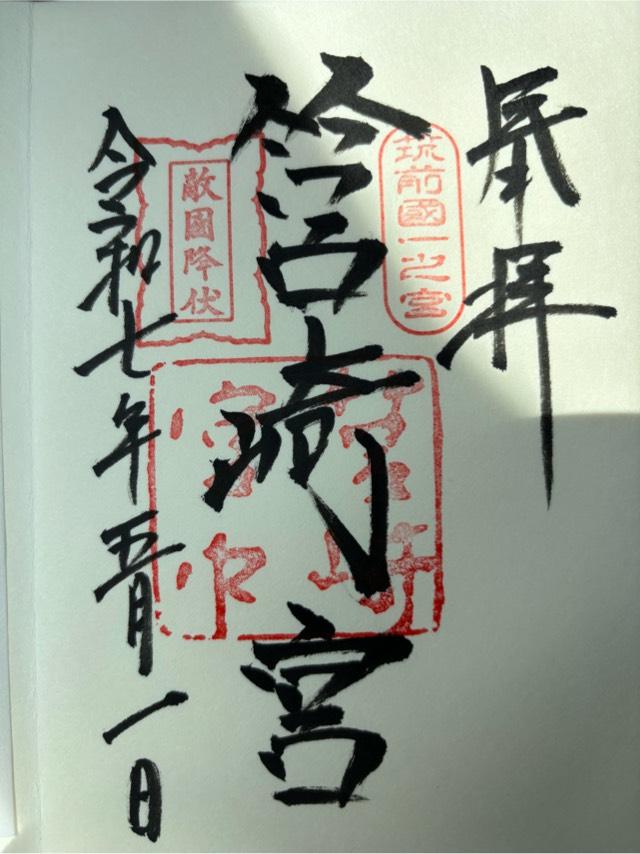 奉拝
筑前國一之宮
筥崎宮
敵國降伏
令和七年五月一日
筥崎
宮印